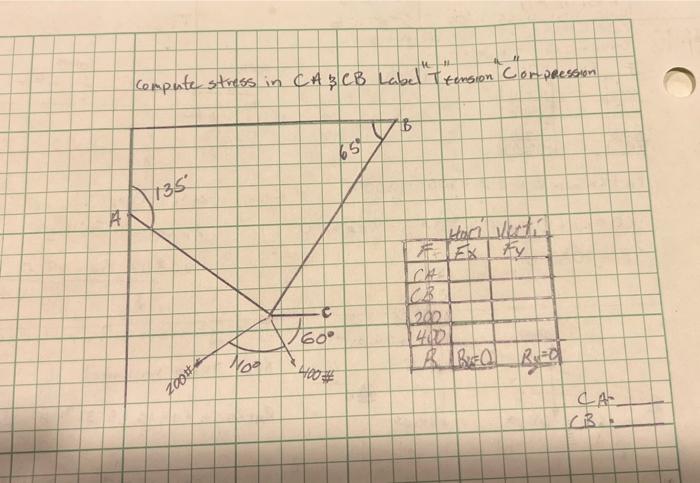 Compute stress in CA & CB Label "T"tension "C"ompression
B
65°
135°
A
Hori Verti
F Fx Fy
CA
CB
200
400
R Rx=0 Ry=0
C
60°
110°
200#
400#
CA=
CB=